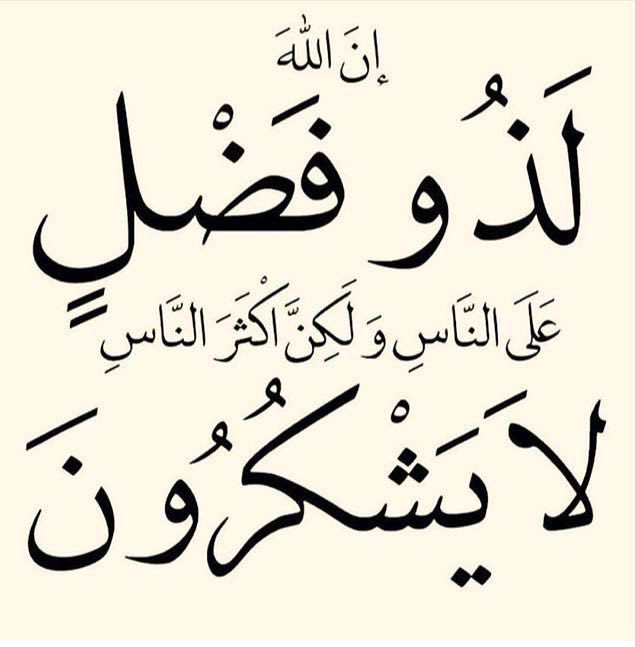 إنَ اللهَ
لَذُو فَضْلٍ
عَلَى النَّاسِ وَ لَكِنَّ اَكْثَرَ النَّاسِ
لاَ يَشْكُرُونَ